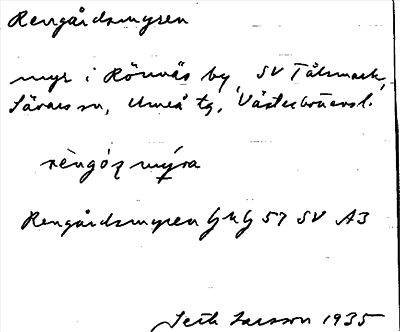 Rengårdsmyren
myr i Rönnäs by, SV Tålsmark,
Sävars sn, Umeå tg, Västerbottensl.
rèngó̱ẓmýra
Rengårdsmyren GKG 57 SV A3
Seth Larsson 1935